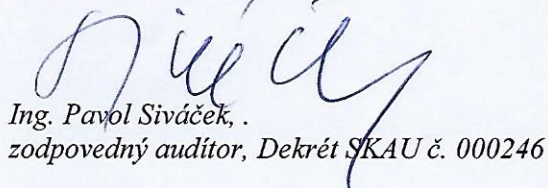 Ing. Pavol Siváček, .
zodpovedný audítor, Dekrét SKAU č. 000246